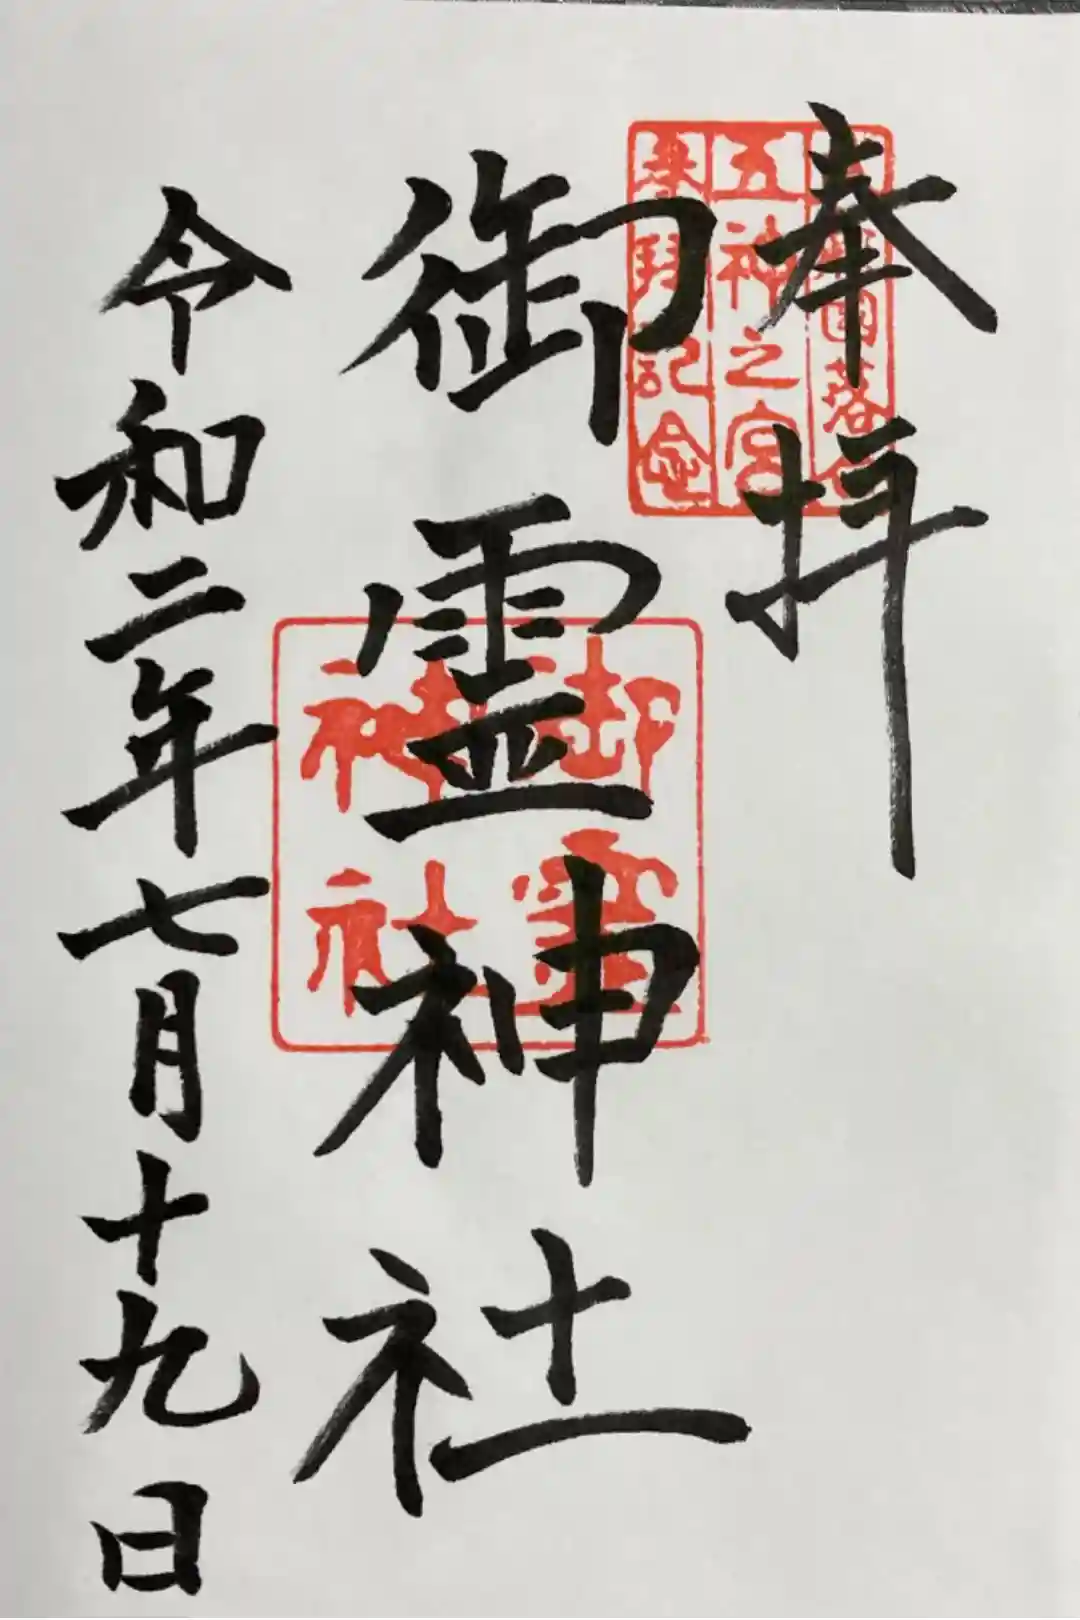 奉拝
五神之宮
参拝記念
御霊神社
御霊
神社
令和二年七月十九日